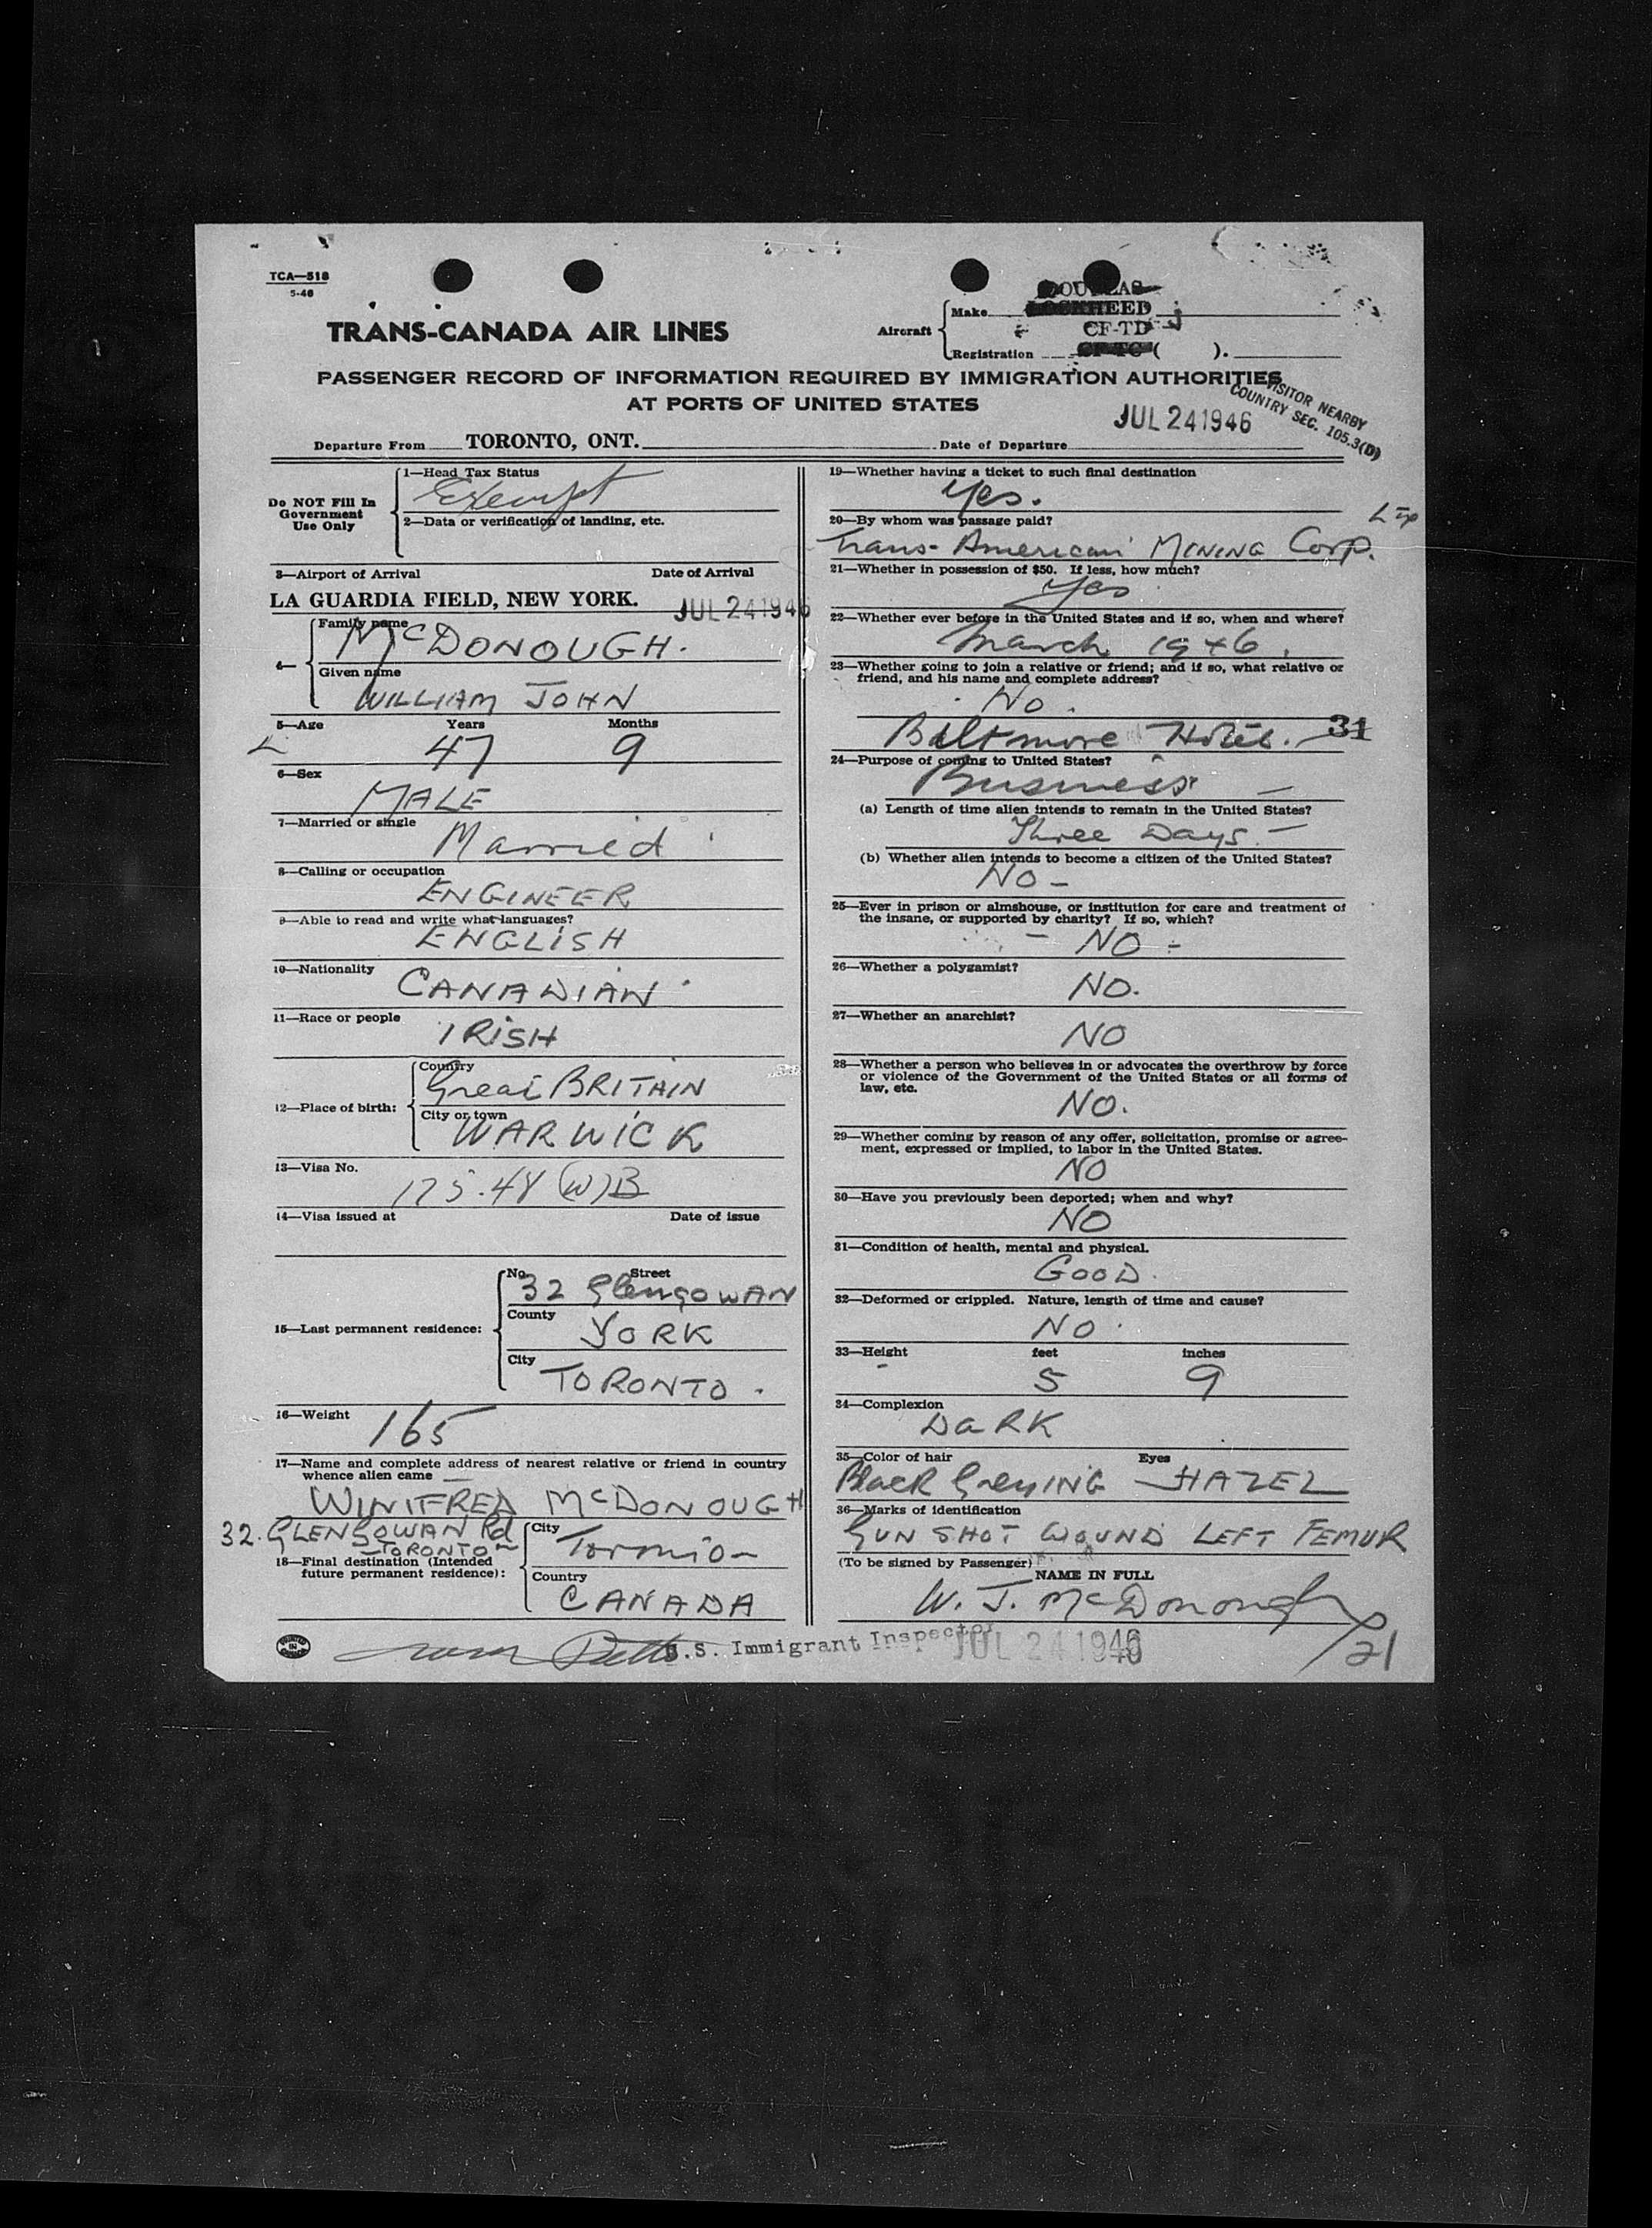 TCA—518
5-46
DOUGLAS
Make LOCKHEED
TRANS-CANADA AIR LINES
Aircraft
CF-TD J
Registration CF-TC ( ).
PASSENGER RECORD OF INFORMATION REQUIRED BY IMMIGRATION AUTHORITIES
AT PORTS OF UNITED STATES
VISITOR NEARBY
COUNTRY SEC. 105.3(D)
JUL 24 1946
Departure From TORONTO, ONT. Date of Departure
Do NOT Fill In
Government
Use Only
1—Head Tax Status
Exempt
2—Data or verification of landing, etc.
3—Airport of Arrival Date of Arrival
LA GUARDIA FIELD, NEW YORK. JUL 24 1946
4— Family name
McDONOUGH.
Given name
WILLIAM JOHN
5—Age Years Months
47 9
6—Sex
MALE
7—Married or single
Married
8—Calling or occupation
ENGINEER
9—Able to read and write what languages?
ENGLISH
10—Nationality
CANADIAN
11—Race or people
IRISH
12—Place of birth:
Country
Great BRITAIN
City or town
WARWICK
13—Visa No.
175.48 (W)B
14—Visa issued at Date of issue
15—Last permanent residence:
No. Street
32 GlengowAN
County
YORK
City
TORONTO.
16—Weight
165
17—Name and complete address of nearest relative or friend in country
whence alien came
WINIFRED McDONOUGH
32. GLENGOWAN Rd
TORONTO
18—Final destination (Intended
future permanent residence):
City
Toronto
Country
CANADA
19—Whether having a ticket to such final destination
Yes.
20—By whom was passage paid?
Trans-American MINING Corp.
21—Whether in possession of $50. If less, how much?
Yes
22—Whether ever before in the United States and if so, when and where?
March 1946.
23—Whether going to join a relative or friend; and if so, what relative or
friend, and his name and complete address?
No.
Biltmore Hotel. 31
24—Purpose of coming to United States?
Business
(a) Length of time alien intends to remain in the United States?
Three Days
(b) Whether alien intends to become a citizen of the United States?
NO -
25—Ever in prison or almshouse, or institution for care and treatment of
the insane, or supported by charity? If so, which?
- NO -
26—Whether a polygamist?
NO.
27—Whether an anarchist?
NO
28—Whether a person who believes in or advocates the overthrow by force
or violence of the Government of the United States or all forms of
law, etc.
NO.
29—Whether coming by reason of any offer, solicitation, promise or agree-
ment, expressed or implied, to labor in the United States.
NO
30—Have you previously been deported; when and why?
NO
31—Condition of health, mental and physical.
GOOD.
32—Deformed or crippled. Nature, length of time and cause?
NO.
33—Height feet inches
5 9
34—Complexion
DaRK
35—Color of hair Eyes
Black GreyING HAZEL
36—Marks of identification
GUN SHOT WOUND LEFT FEMUR
(To be signed by Passenger)
NAME IN FULL
W. J. McDonough
U.S. Immigrant Inspector JUL 24 1946
21